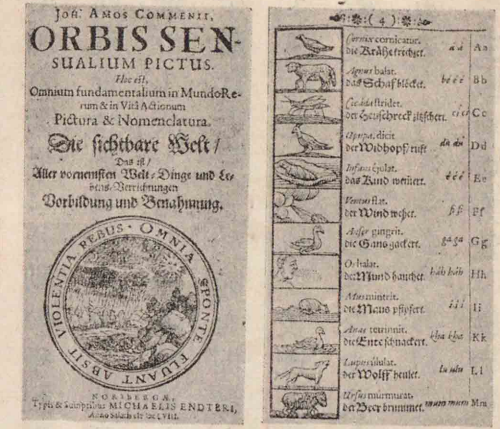 Joh. Amos Commenii,
ORBIS SEN-
SUALIUM PICTUS.
Hoc est,
Omnium fundamentalium in Mundo Re-
rum & in Vitâ Actionum
Pictura & Nomenclatura.
Die sichtbare Welt/
Das ist/
Aller vornemsten Welt-Dinge und Le-
bens-Verrichtungen
Vorbildung und Benahmung.
OMNIA SPONTE FLUANT ABSIT VIOLENTIA REBUS
NORIBERGÆ,
Typis & Sumptibus MICHAELIS ENDTERI,
Anno Salutis
( 4 )
Cornix cornicatur.
die Krähe krechzet. á á A a
Agnus balat.
das Schaf blöcket. bé é é B b
Cicada stridet.
der Heuschreck zitzschert. C c
Upupa dicit
der Widhopf/ ruft du du D d
Infans ejulat.
das Kind weinert. é é é E e
Ventus flat.
der Wind wehet. F f
Anser gingrit.
die Gans gackert. ga ga G g
Os halat.
der Mund hauchet. háh háh H h
Mus mintrit.
die Maus pfipfert. í í í I i
Anas tetrinnit.
die Ente schnackert. kha kha K k
Lupus ululat.
der Wolff heulet. lu ulu L l
Ursus murmurat.
der Beer brummet. mum mum M m